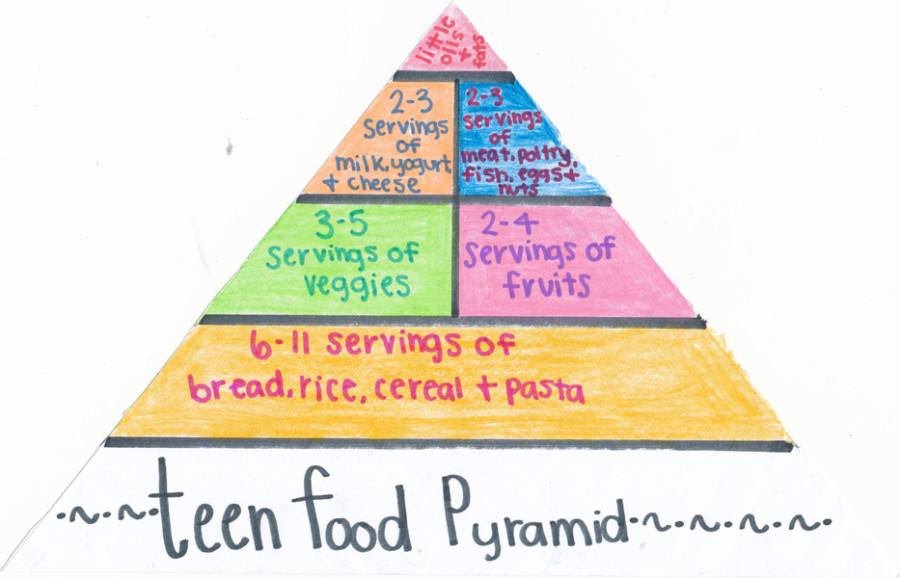 little
oils
+
fats
2-3
servings
of
milk,yogurt
+ cheese
2-3
servings
of
meat,poltry,
fish, eggs+
nuts
3-5
servings of
veggies
2-4
servings of
fruits
6-11 servings of
bread,rice, cereal + pasta
teen food Pyramid